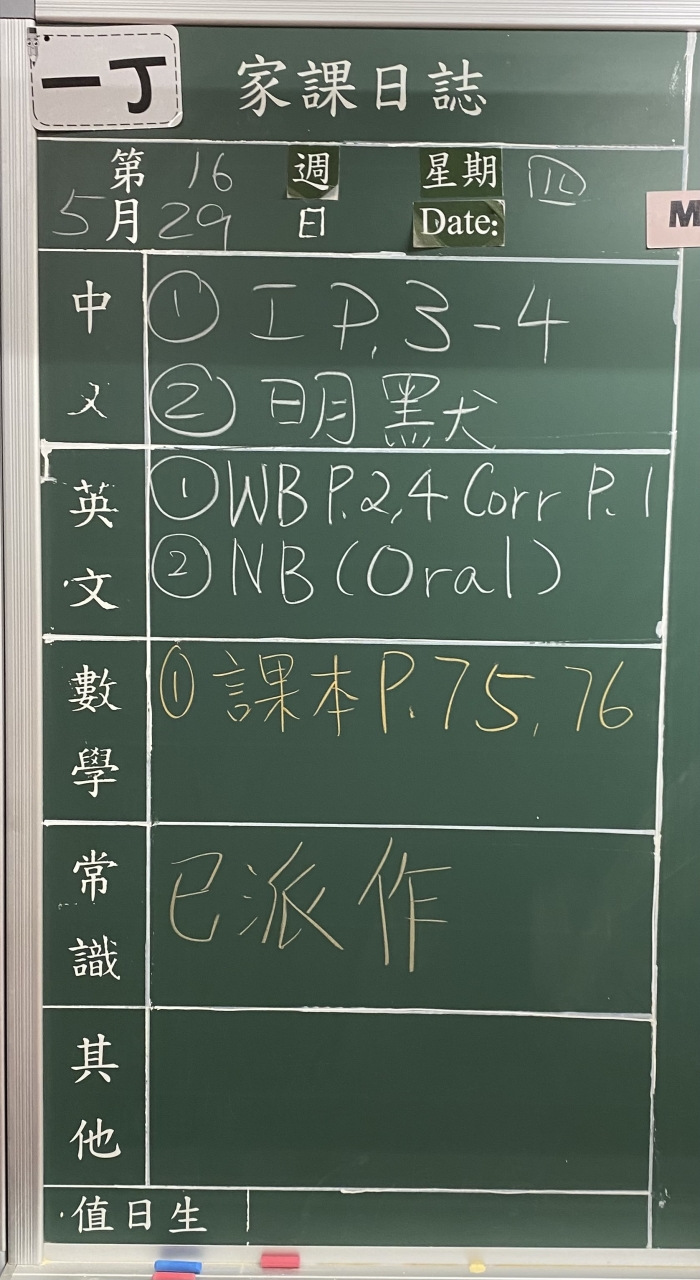 一丁
家課日誌
第 16 週 星期 四
5 月 29 日 Date:
M
中文
① 工 P.3-4
② 明默
英文
① WB P.2,4 Corr P.1
② NB (Oral)
數學
① 課本 P.75, 76
常識
已派作
其他
值日生